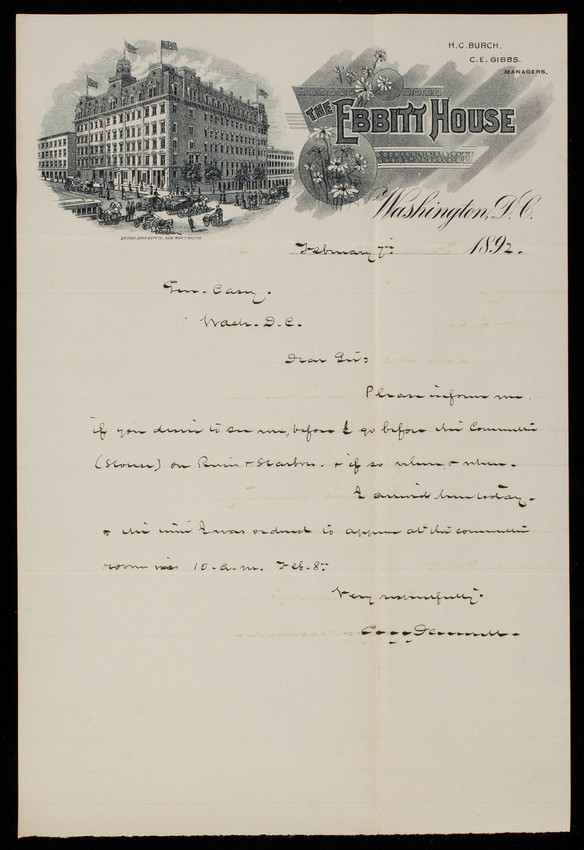 H. C. BURCH,
C. E. GIBBS.
MANAGERS,
THE EBBITT HOUSE
Washington, D. C.
February 7th 1892.
Gen. Casey.
Wash. D.C.
Dear Sir:
Please inform me,
if you desire to see me, before I go before the Committee
(House) on Rivers & Harbors. & if so when & where.
I arrived here today.
& the time I was ordered to appear at the committee
room is 10. a.m. Feb. 8th
Very respectfully.